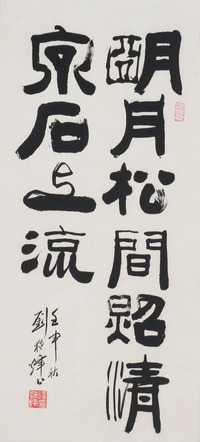 明月松間照清
泉石上流
壬申秋
劉